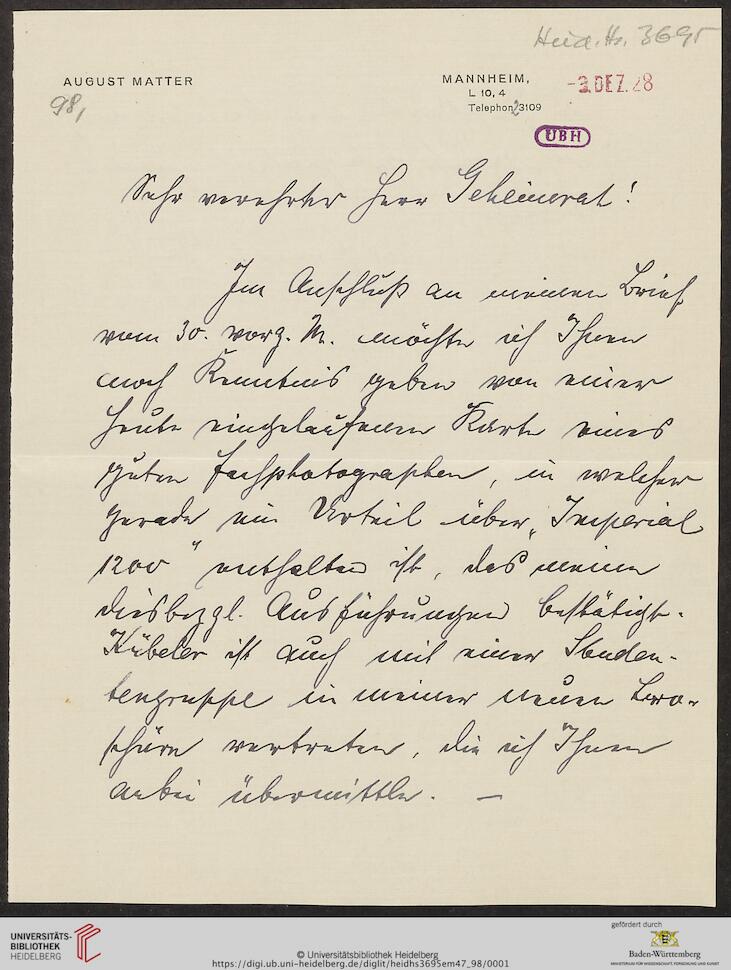 Heid. Hs. 3695
AUGUST MATTER
MANNHEIM,
L 10, 4
Telephon 23109
-3. DEZ. 28
98,
UBH
Sehr verehrter Herr Geheimrat!
Im Anschluß an meinen Brief
vom 30. vorg. M. möchte ich Ihnen
noch Kenntnis geben von einer
heute eingelaufenen Karte eines
guten Fachphotographen, in welcher
gerade ein Urteil über „Imperial
1200" enthalten ist, das meine
diesbezgl. Ausführungen bestätigt.
Kübeler ist auch mit einer Studen-
tengruppe in meiner neuen Bro-
schüre vertreten, die ich Ihnen
anbei übermittle. —
UNIVERSITÄTS-
BIBLIOTHEK
HEIDELBERG
© Universitätsbibliothek Heidelberg
https://digi.ub.uni-heidelberg.de/diglit/heidhs3695em47_98/0001
gefördert durch
Baden-Württemberg
MINISTERIUM FÜR WISSENSCHAFT, FORSCHUNG UND KUNST